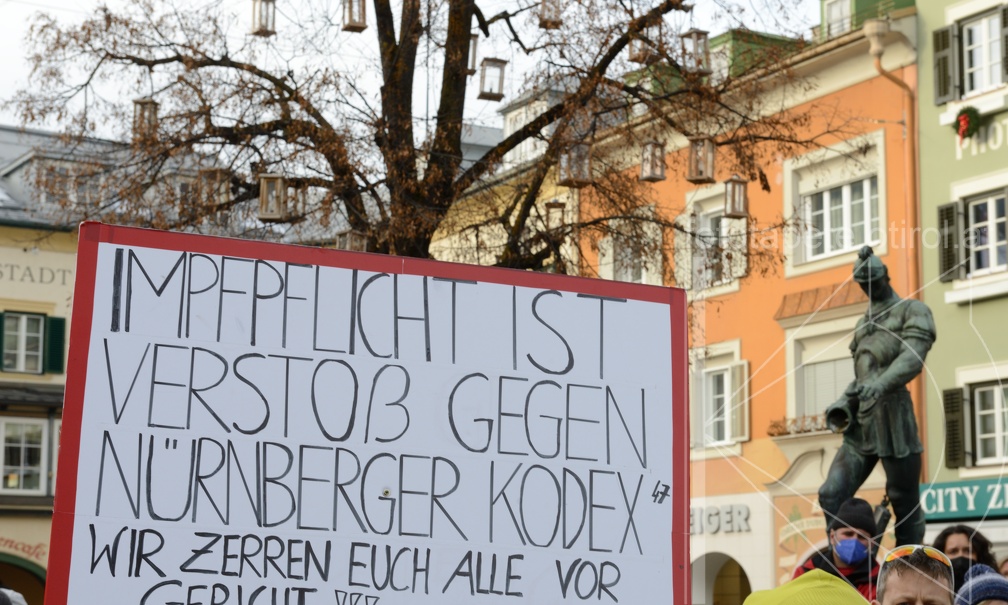 IMPFPFLICHT IST
VERSTOß GEGEN
NÜRNBERGER KODEX"47
WIR ZERREN EUCH ALLE VOR
GERICHT !!!
STADT
CITY